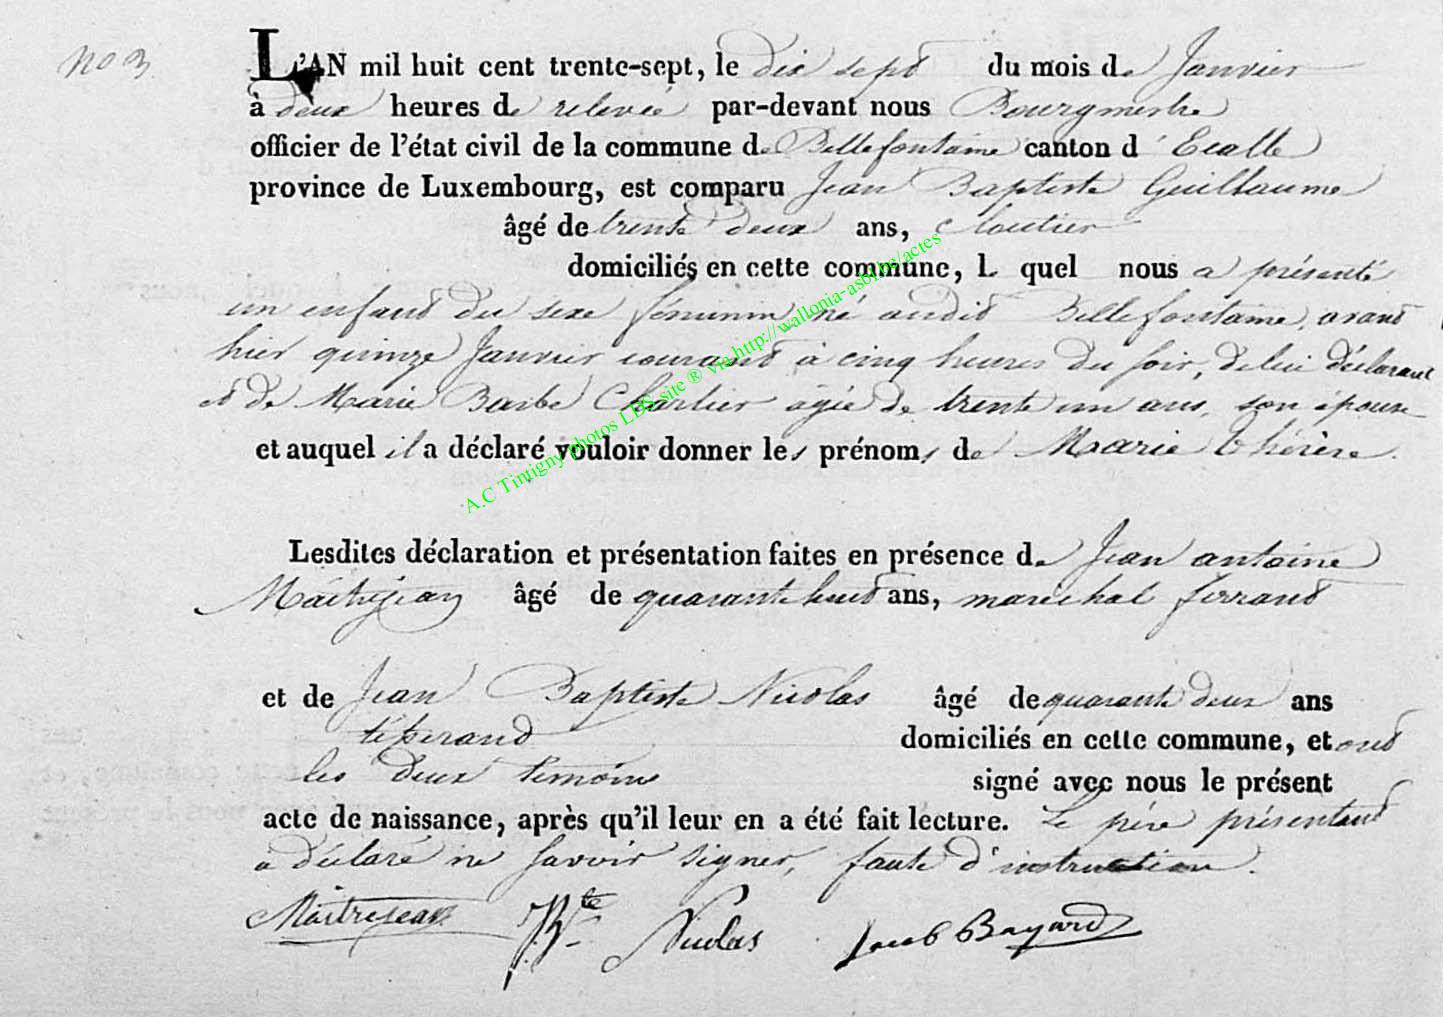 No 3
L'AN mil huit cent trente-sept, le dix sept du mois de Janvier
à deux heures de relevée par-devant nous Bourgmestre
officier de l'état civil de la commune de Bellefontaine canton d'Etalle
province de Luxembourg, est comparu Jean Baptiste Guillaume
âgé de trente deux ans, cloutier
domiciliés en cette commune, l quel nous a présenté
un enfant du sexe féminin né audit Bellefontaine, avant
hier quinze Janvier courant à cinq heures du soir, de lui déclarant
et de Marie Barbe Charlier âgée de trente un ans, son épouse
et auquel il a déclaré vouloir donner les prénoms de Marie Thérèse.
Lesdites déclaration et présentation faites en présence de Jean antoine
Maitrejean âgé de quarante huit ans, maréchal ferrant
et de Jean Baptiste Nicolas âgé de quarante deux ans
domiciliés en cette commune, et ont
les deux témoins signé avec nous le présent
acte de naissance, après qu'il leur en a été fait lecture. Le père présentant
a déclaré ne savoir signer, faute d'instruction.
Maitrejean JBte Nicolas Jacob Bayard
A.C Tintigny photos LDS site ® via http://wallonia-asbl.be/actes